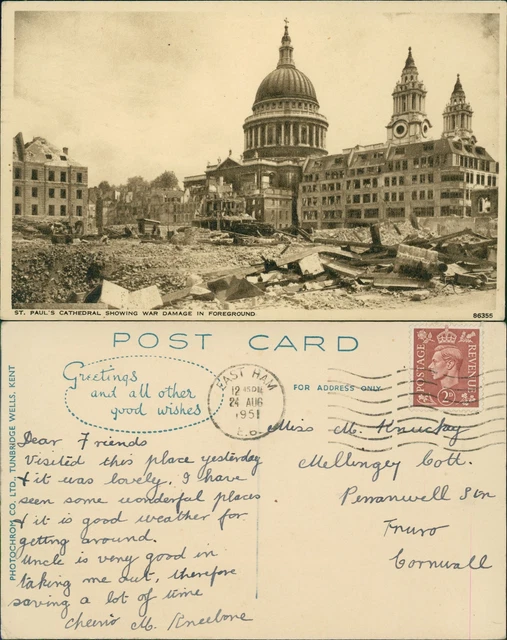 ST. PAUL'S CATHEDRAL SHOWING WAR DAMAGE IN FOREGROUND
86355
POST CARD
Greetings
and all other
good wishes
FOR ADDRESS ONLY
EAST HAM
12
24 AUG
1951
E.6.
POSTAGE
REVENUE
2D
PHOTOCHROM CO, LTD, TUNBRIDGE WELLS, KENT
Dear Friends
Visited this place yesterday
& it was lovely, I have
seen some wonderful places
& it is good weather for
getting around.
Uncle is very good in
taking me out, therefore
saving a lot of time
Cheerio M. Kneebone
Miss M.
Mellingey Cott.
Perranwell Stn
Truro
Cornwall